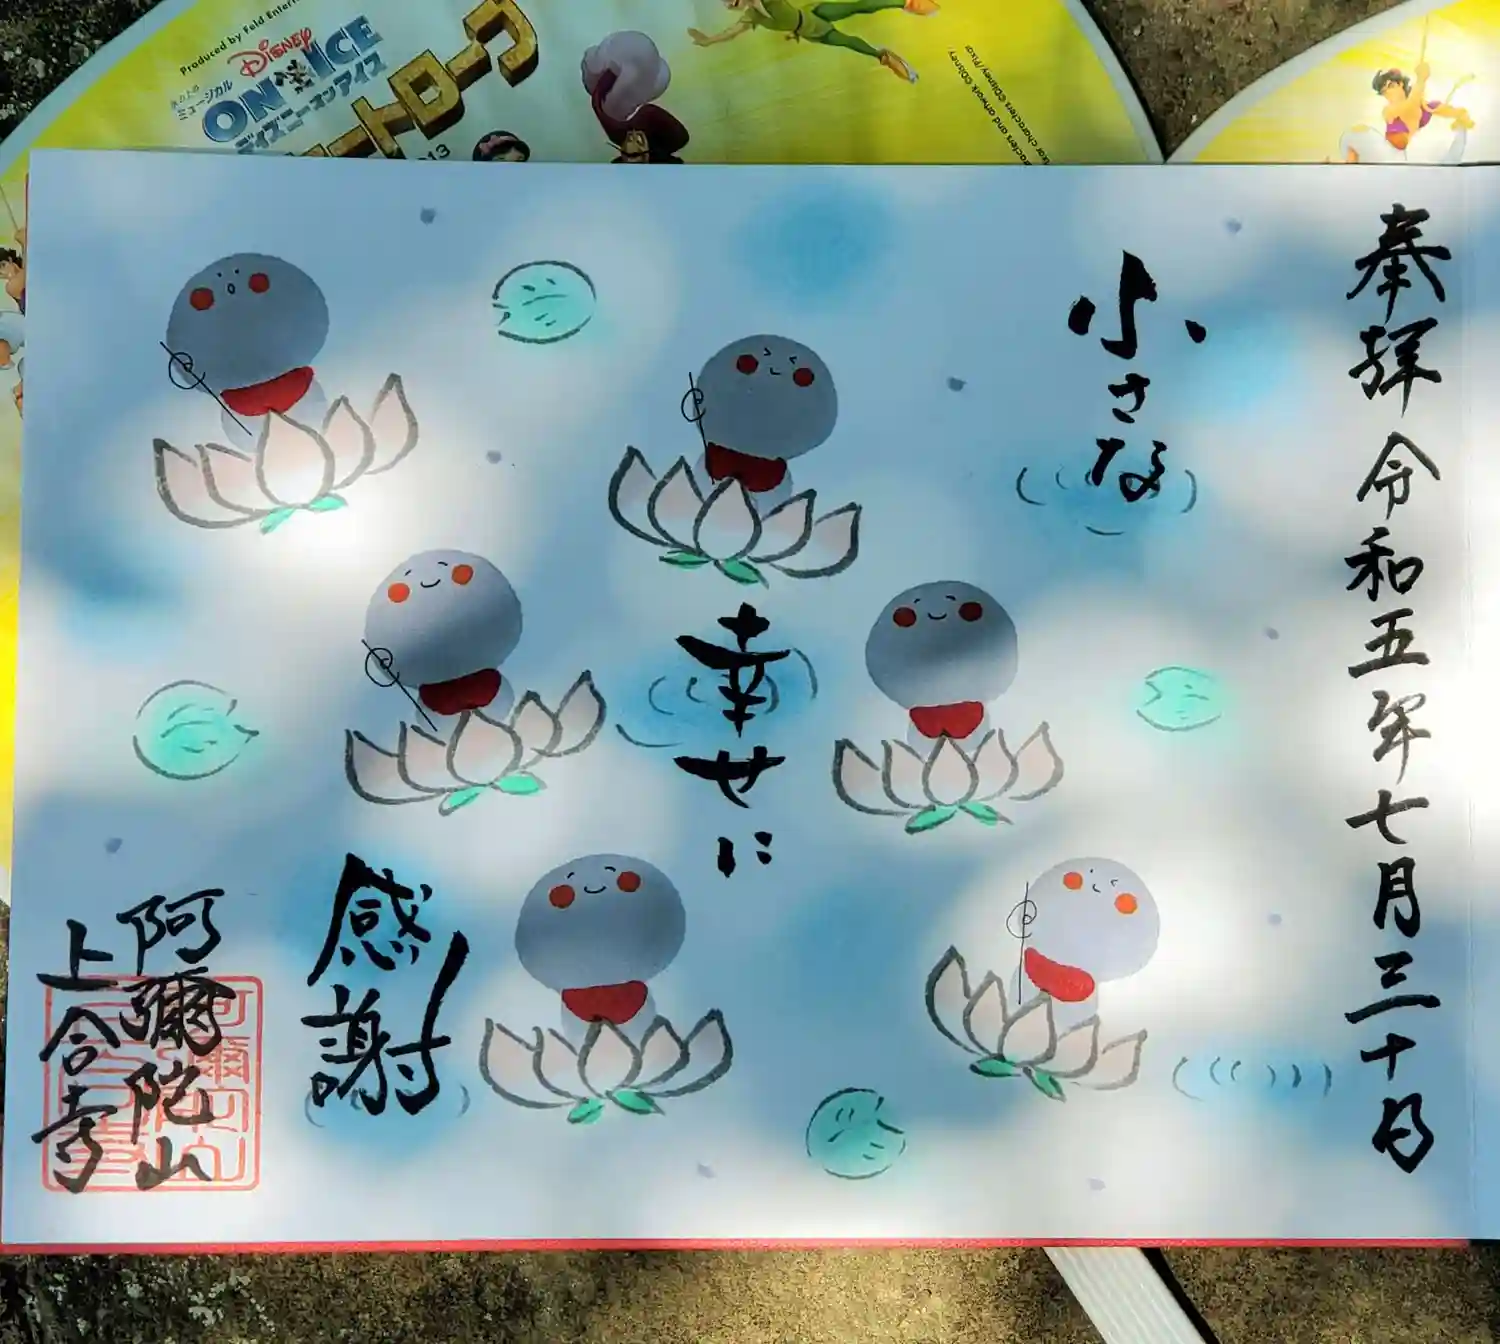 Produced by Feld Entertainment
Disney
氷の上の
ミュージカル
ON ICE
ディズニー・オン・アイス
characters and artwork ©Disney
characters ©Disney/Pixar
奉拝 令和五年七月三十日
小さな
幸せに
感謝
阿彌陀山
上合寺